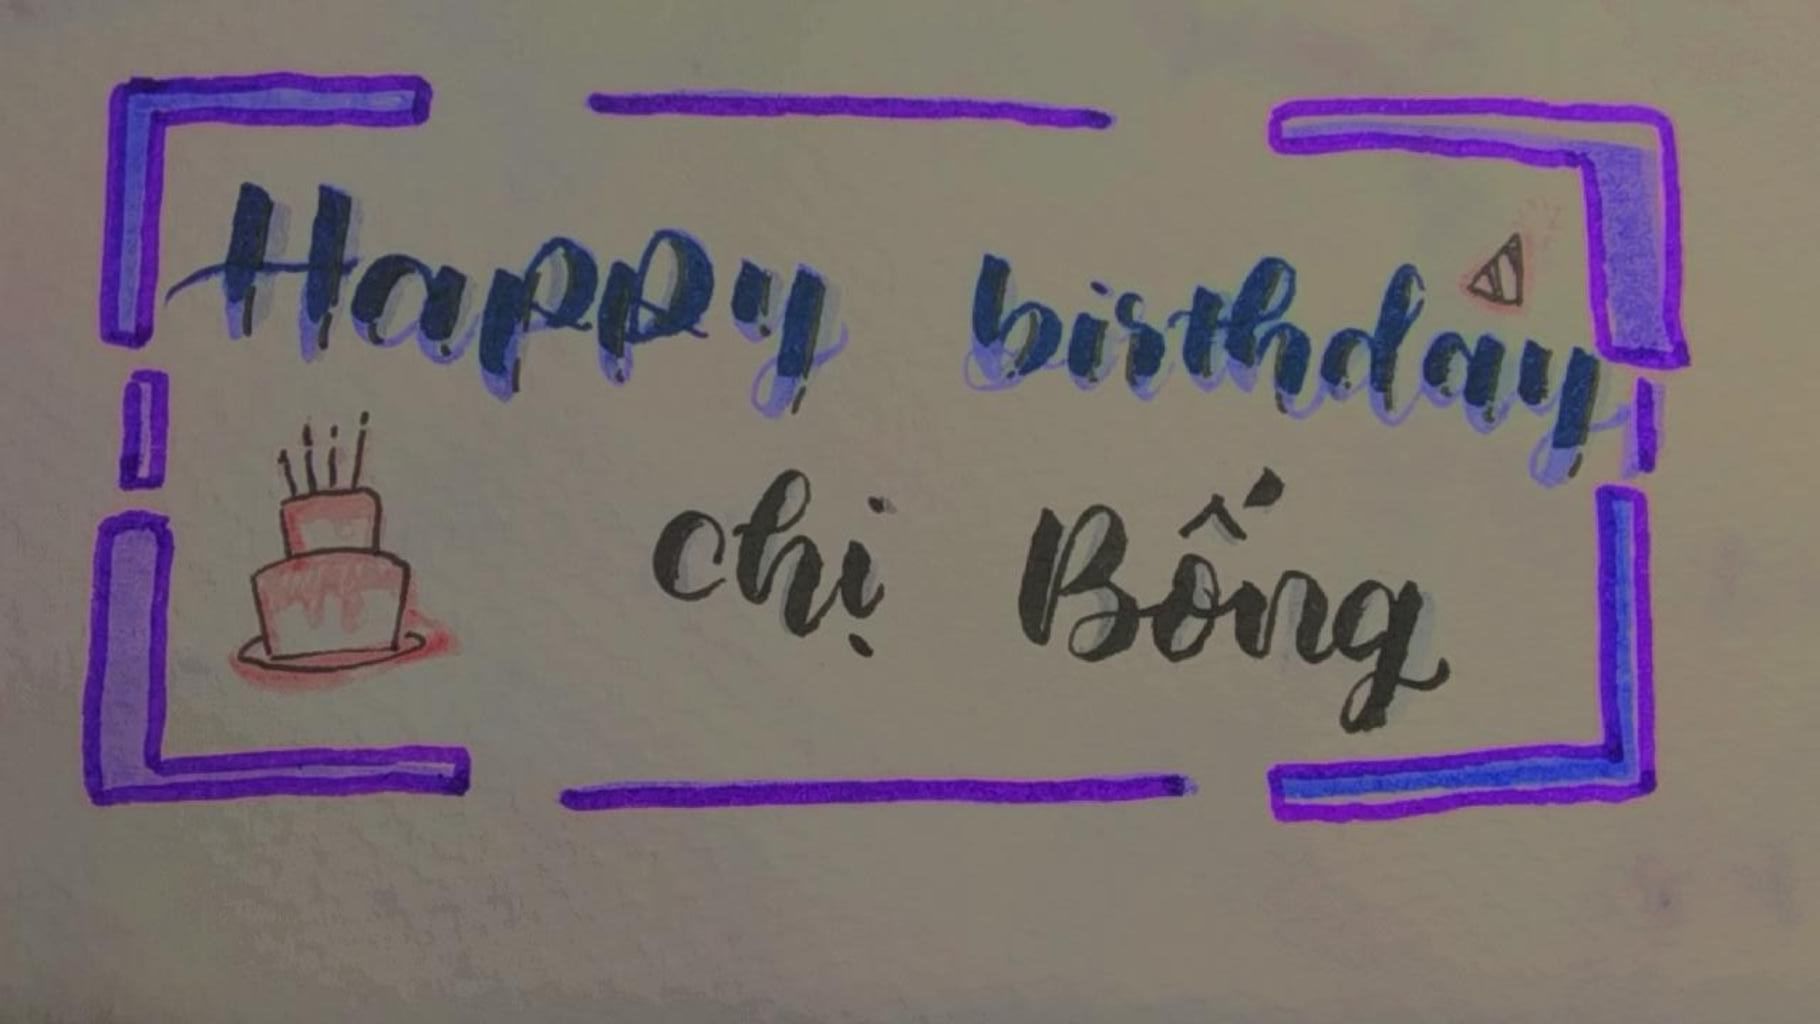 Happy birthday
chị Bống